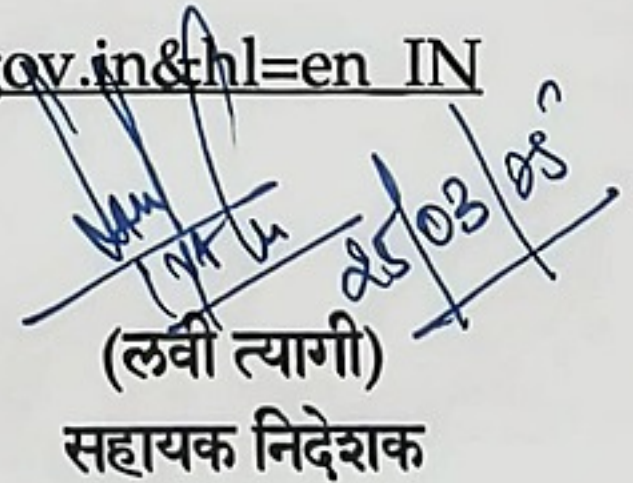 gov.in&hl=en_IN
25/03/25
(लवी त्यागी)
सहायक निदेशक